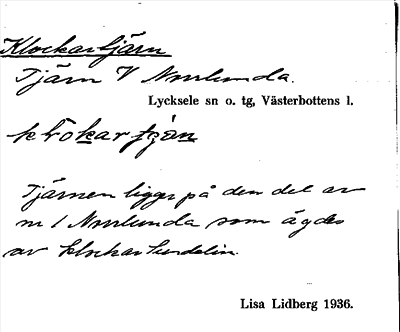 Klockartjärn
Tjärn V Norrlunda.
Lycksele sn o. tg, Västerbottens l.
klòkartjän
Tjärnen ligger på den del av
nr 1 Norrlunda som ägdes
av klockar Lundelin.
Lisa Lidberg 1936.